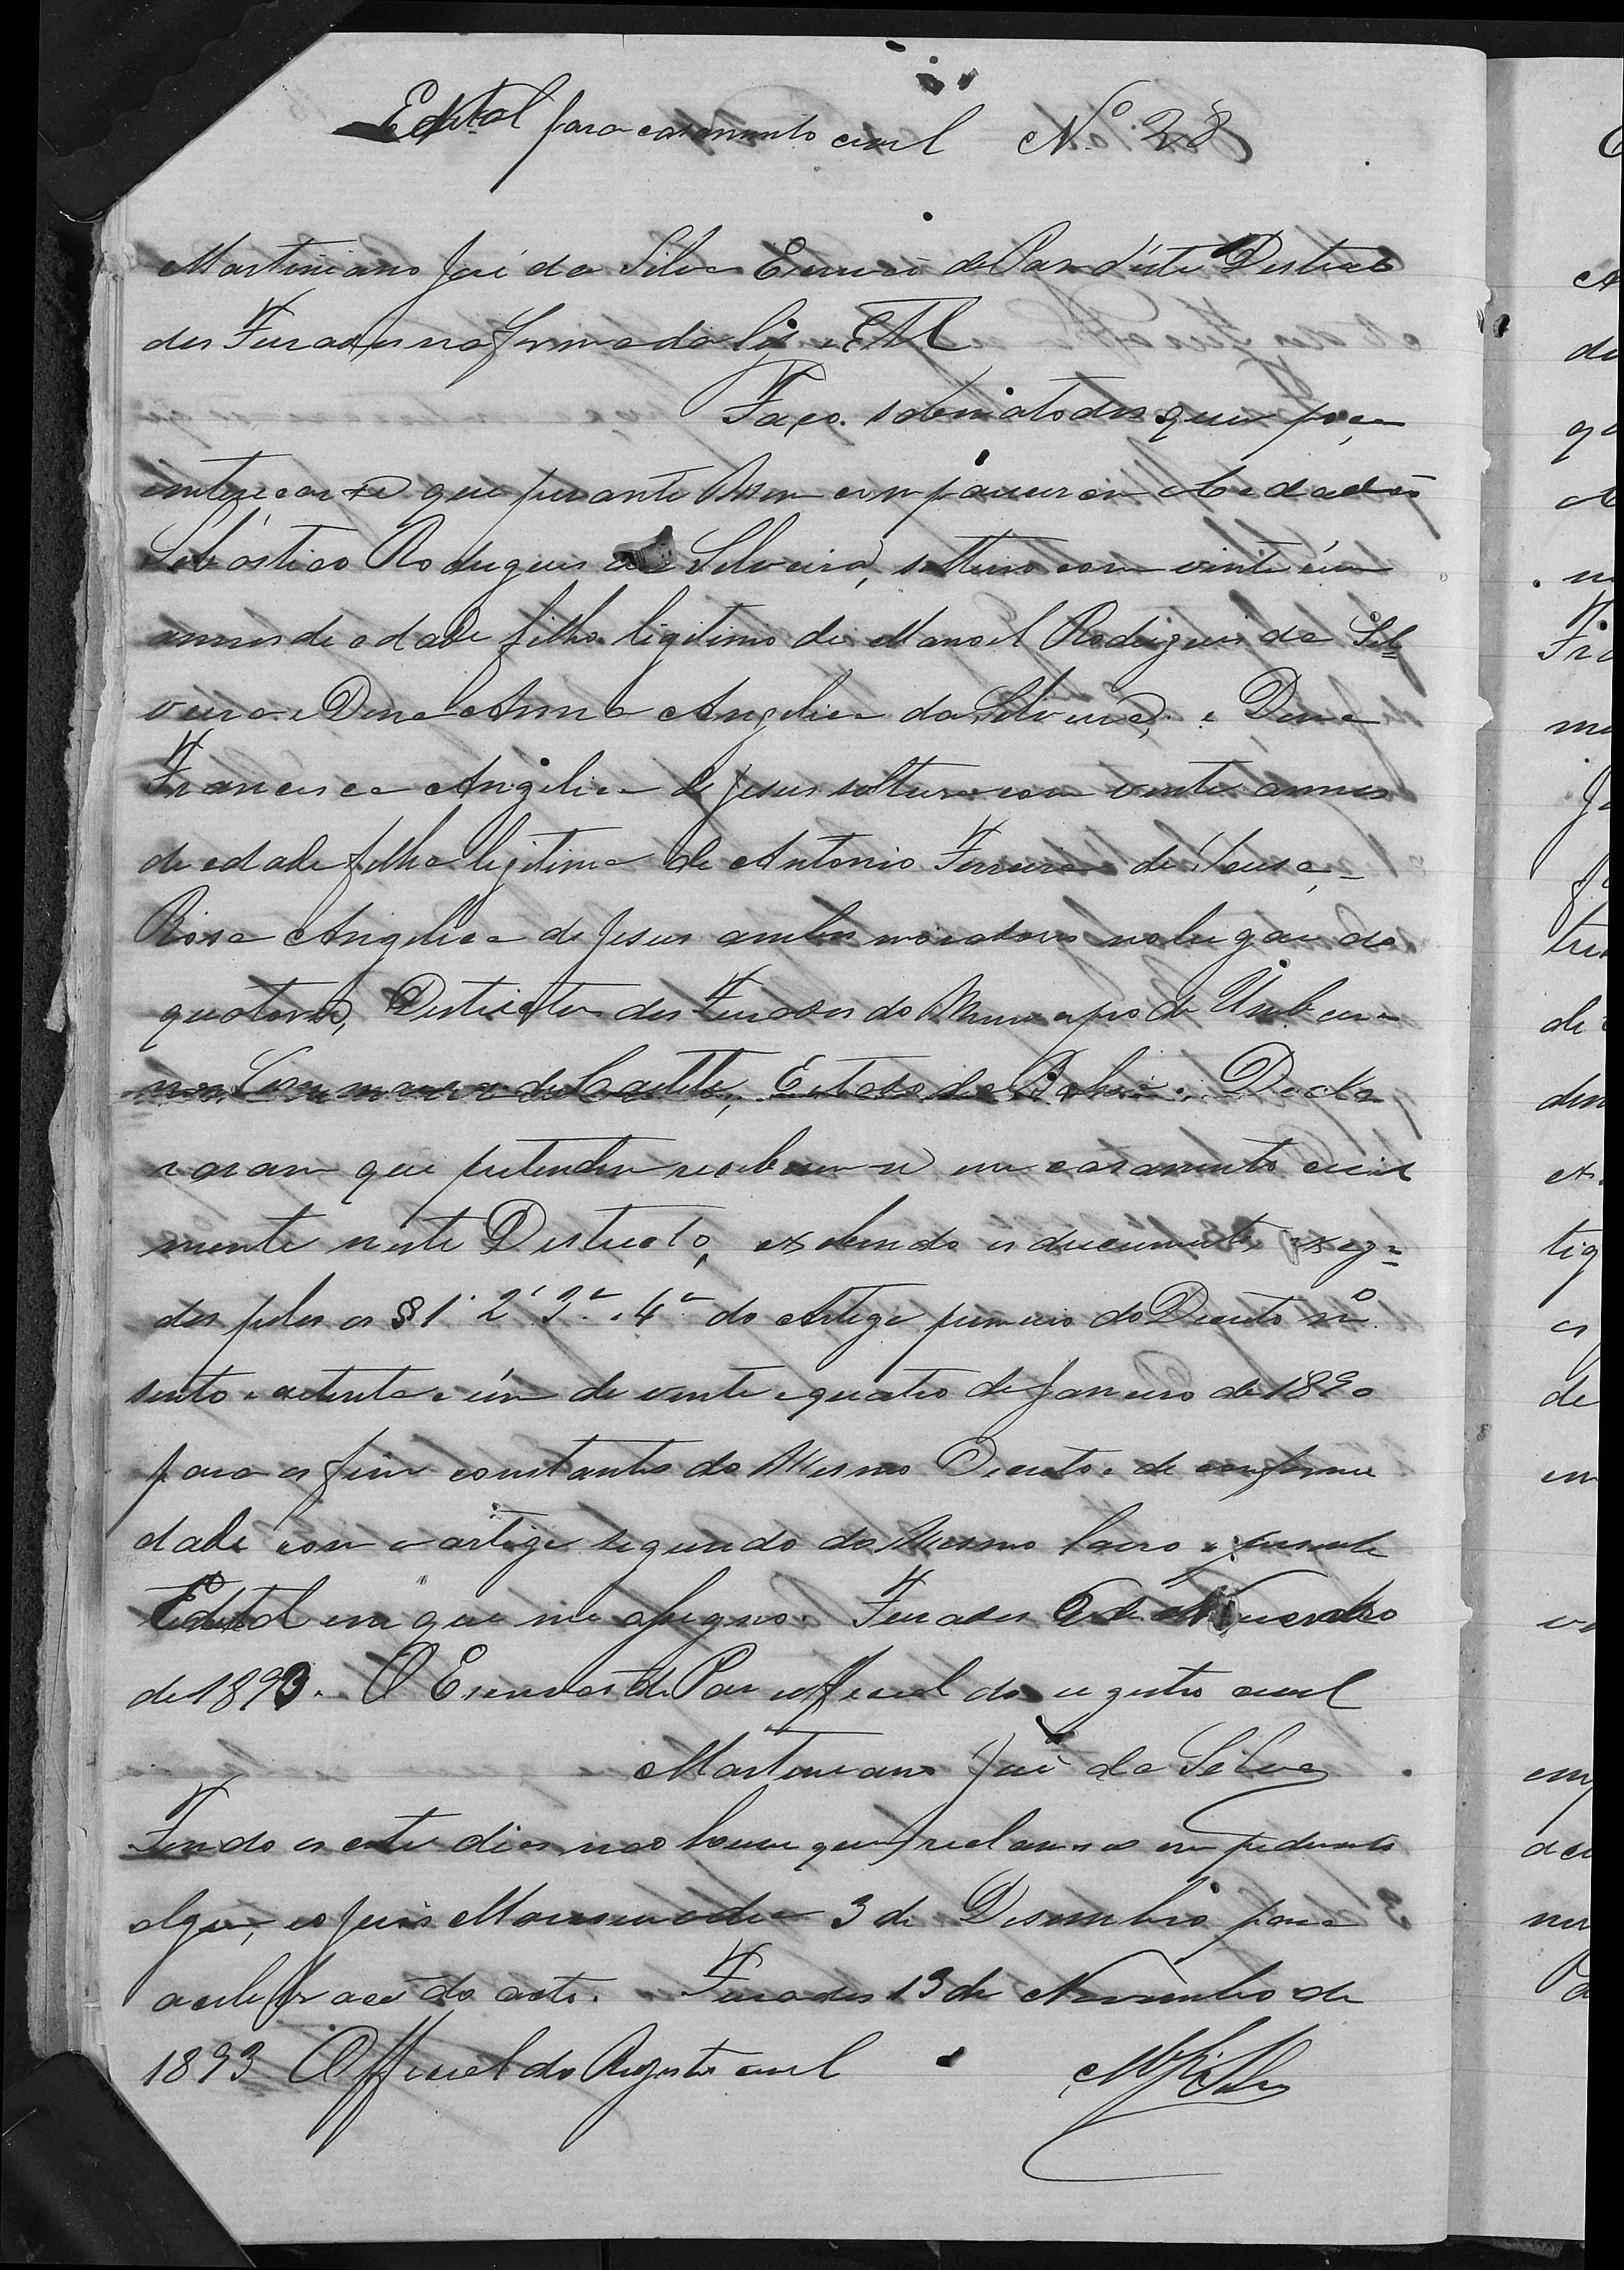 Edital para casamento civil Nº 28
Martiniano José da Silva Escrivão de Paz d'este Destricto
dos Furados na forma da lei, etc
Faço saber a todos quem poça
intereçar se que perante mim comparecerão o Cedadão
Sebastião Rodrigues da Silveira, solteiro com vinte é um
annos de edade filho legitimo de Manoel Rodrigues da Sil=
veira e Dona Anna Angelica da Silveira, e Dona
Francisca Angelica de Jesus solteira com vinte annos
de edade filha legitima de Antonio Ferreira de Sousa, e
Rosa Angelica de Jesus ambos moradores no lugar da
Destricto dos Furados do Municipio de Umbura
nas Commarca de Caetité, Estado da Bahia. Decla
raram que pretendem receberem se em casamento civil
mente neste Destricto, exebindo os documentos exegi=
dos pelos os § 1º 2º 3º e 4º do Artigo primeiro do Decreto nº
sento e oitenta e úm de vinte e quatro de Janeiro de 1890
para os fins constantes do Mesmo Decreto e de conforme
dade com o artigo segundo do Mesmo lavro o presente
Edital em que me assigno. Furados de Novembro
de 1893. O Escrivão de Paz official do registro civil
Martiniano José da Silva
Findo os oito dias não houve quem reclamasse empedimento
algum, o Juis Marcou o dia 3 de Desembro para
a celebração do acto. Furados 13 de Novembro de
1893 O Official do Registro civil MJSilva